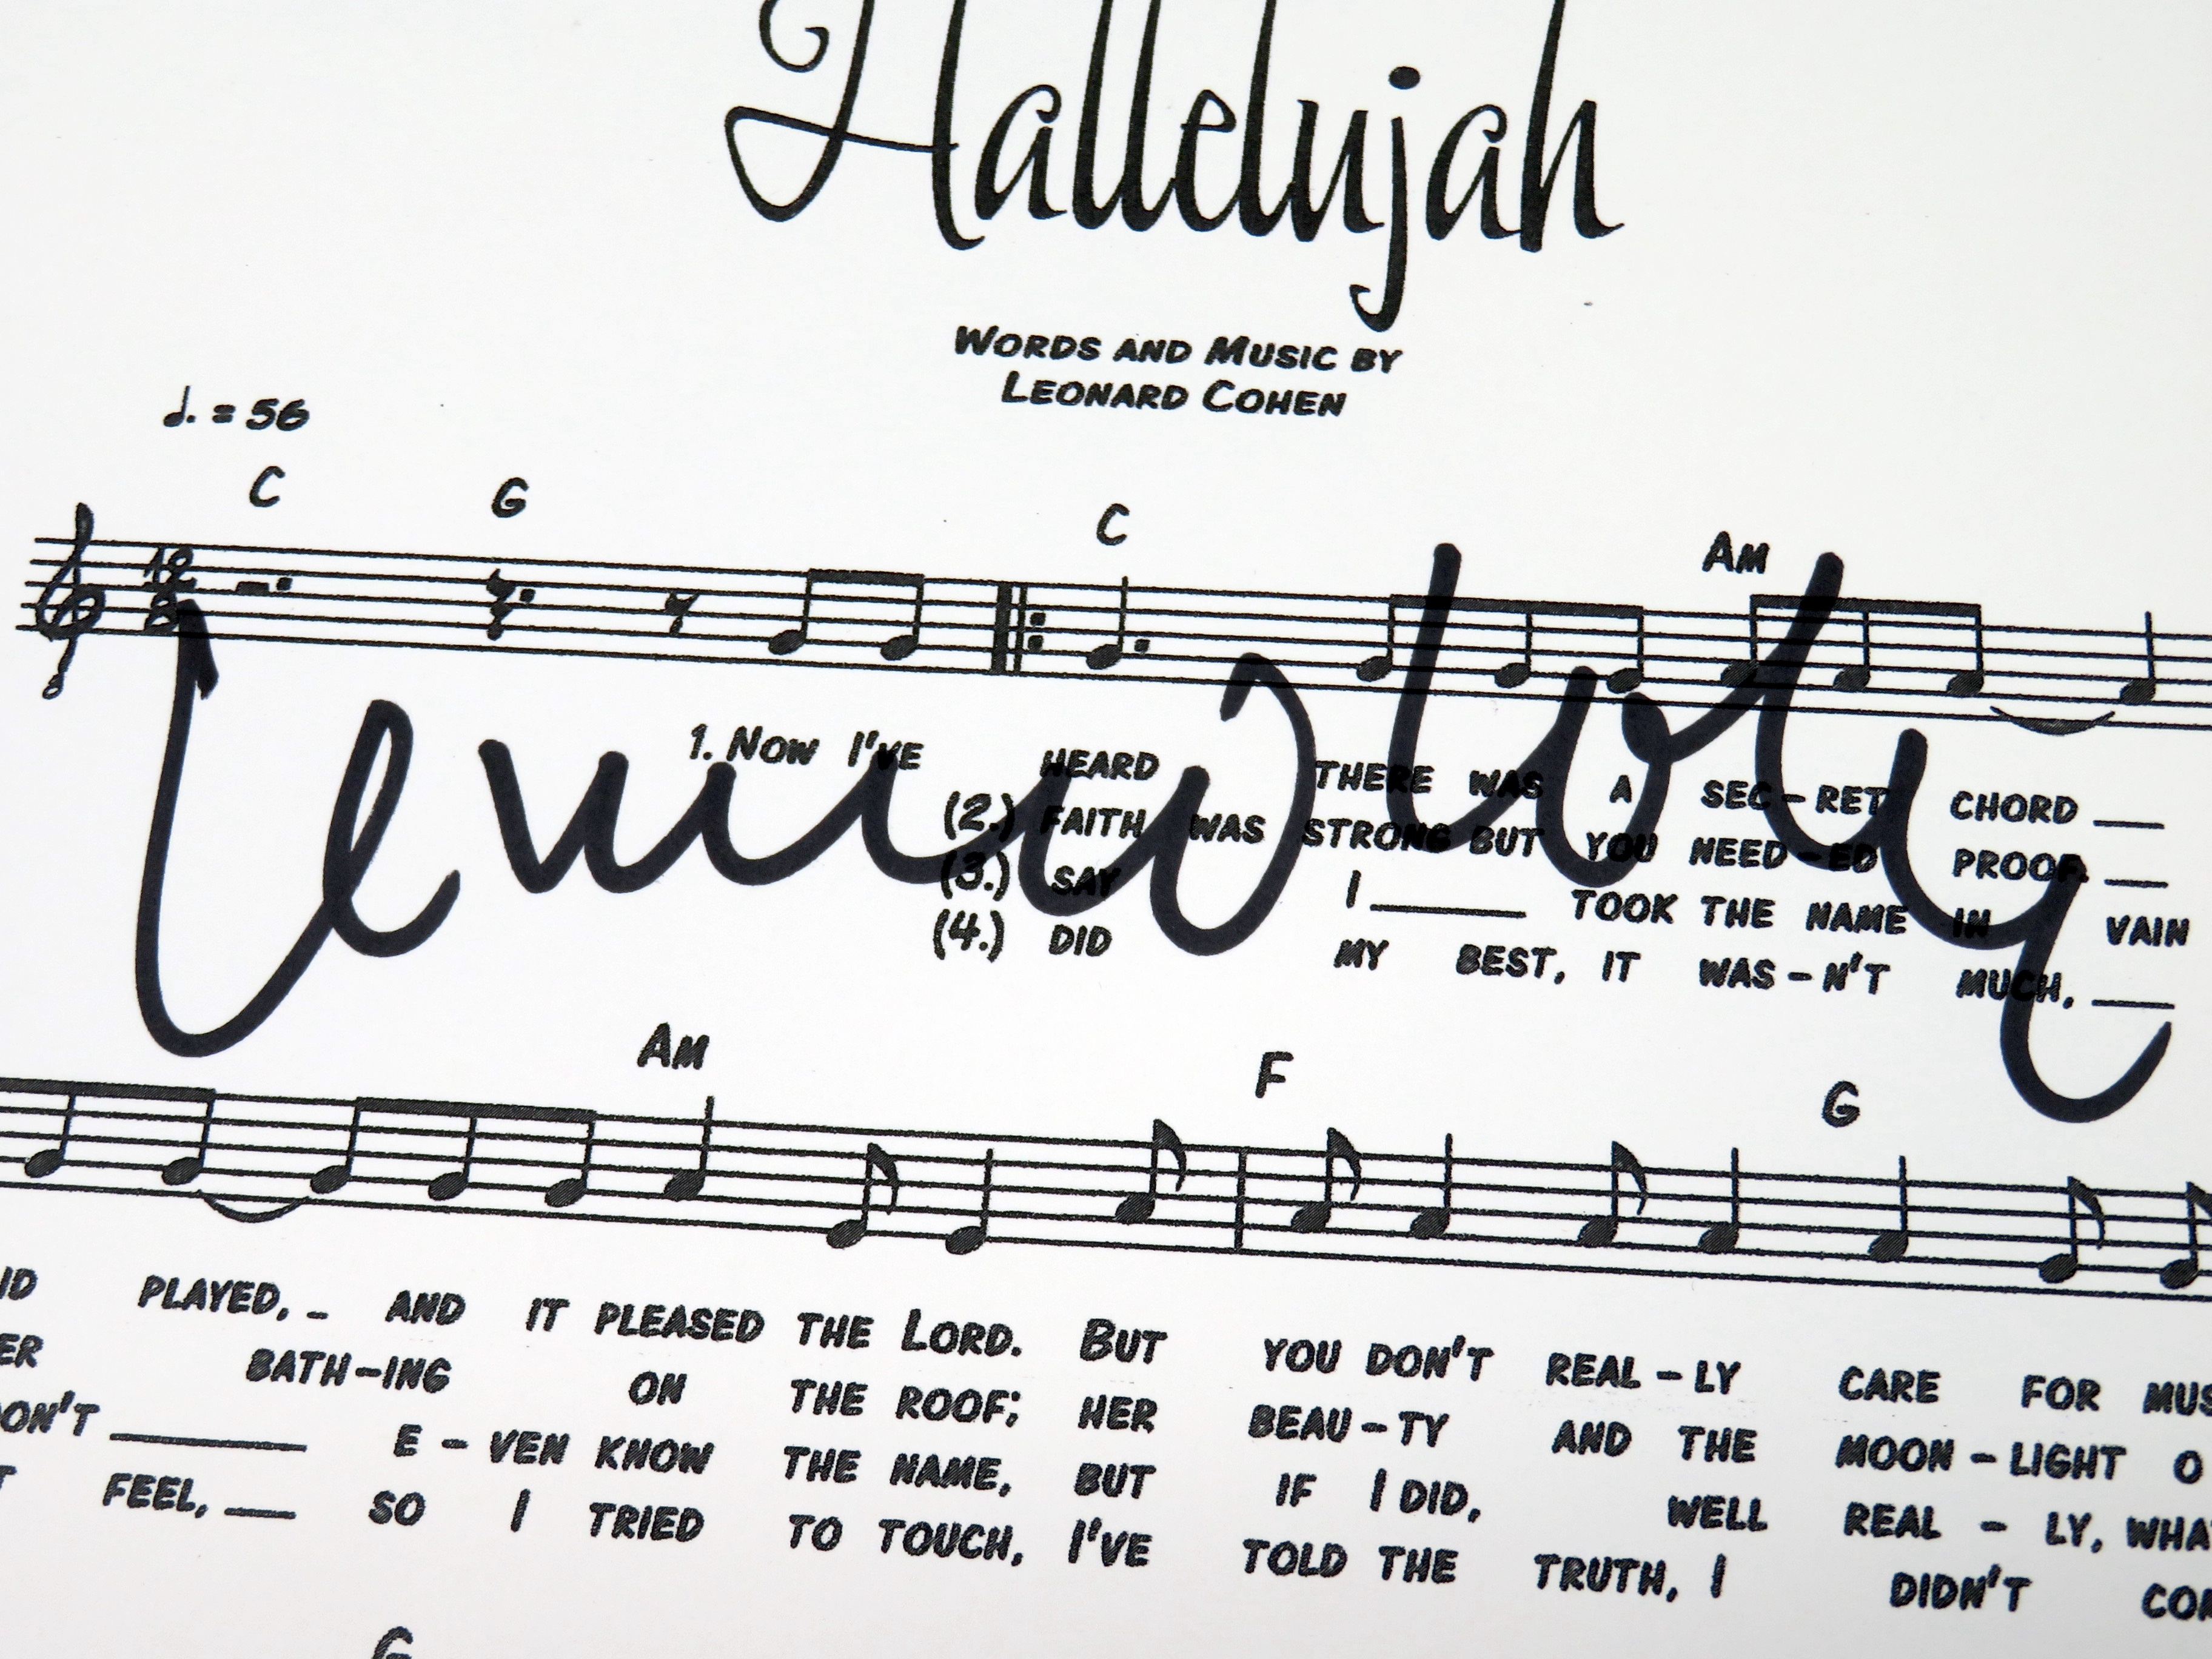 Hallelujah
WORDS AND MUSIC BY
LEONARD COHEN
♩. = 56
C G C AM
12
8
1. NOW I'VE HEARD THERE WAS A SEC-RET CHORD __
(2.) FAITH WAS STRONG BUT YOU NEED-ED PROOF. __
(3.) SAY I ____ TOOK THE NAME IN VAIN
(4.) DID MY BEST, IT WAS-N'T MUCH, __
AM F G
PLAYED, _ AND IT PLEASED THE LORD. BUT YOU DON'T REAL-LY CARE FOR MUS
ER BATH-ING ON THE ROOF; HER BEAU-TY AND THE MOON-LIGHT O
ON'T ____ E-VEN KNOW THE NAME, BUT IF I DID, WELL REAL - LY, WHA
T FEEL, __ SO I TRIED TO TOUCH, I'VE TOLD THE TRUTH, I DIDN'T CO
G